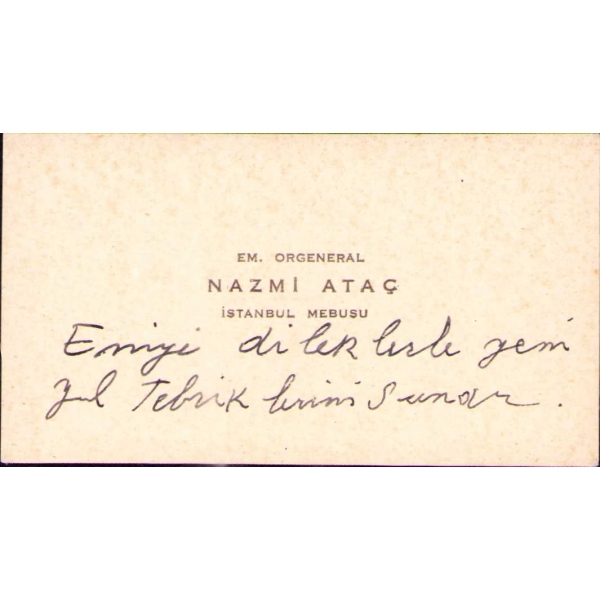 EM. ORGENERAL
NAZMİ ATAÇ
İSTANBUL MEBUSU
Eniyi dileklerle yeni
yıl Tebriklerini Sunar.